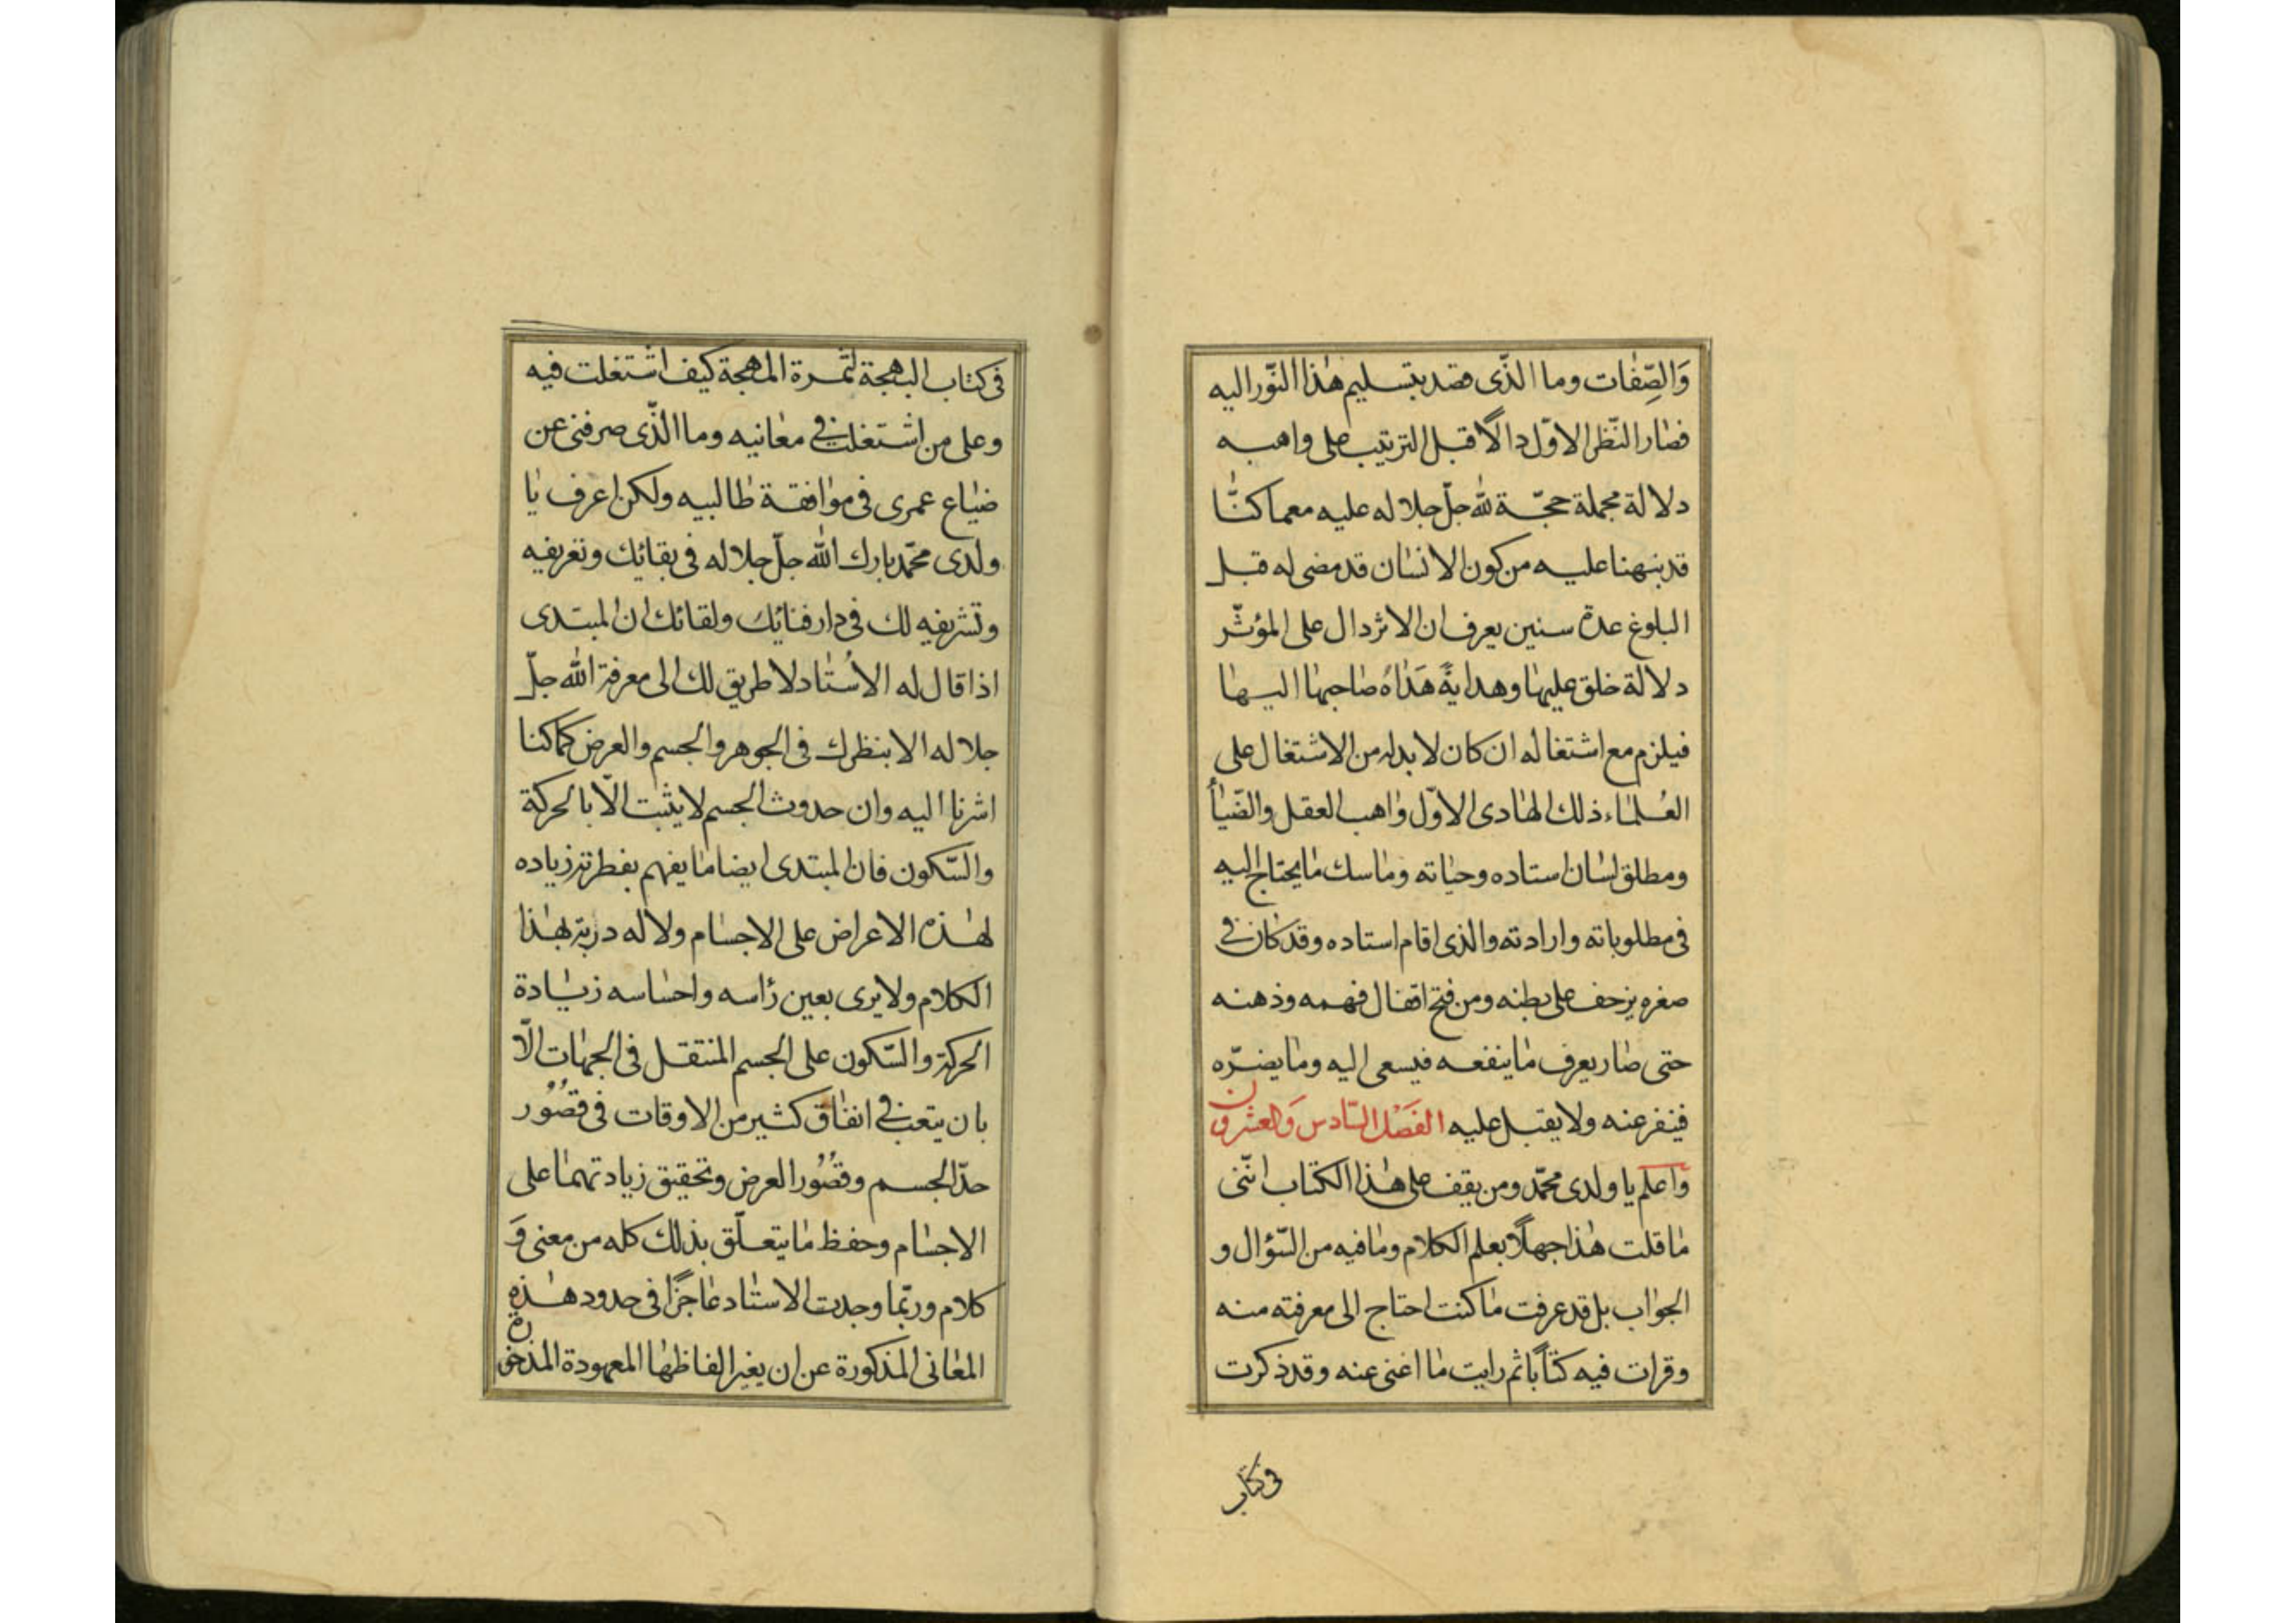 وَالصِّفات وما الذّى قصد بتسليم هذا النّور اليه
فصار النّظر الاوّل دالّا قبل الترتيب على واهبه
دلالة مجملة حجّة لله جلّ جلاله عليه معما كنّا
قد نبهنا عليه من كون الانسان قد مضى له قبل
البلوغ عدة سنين يعرف ان الاثر دال على المؤثّر
دلالة خلق عليها وهداية هداه صاحبها اليها
فيلزم مع اشتغاله ان كان لا بد له من الاشتغال على
العُلماء ذلك الهادى الاوّل واهب العقل والضّياء
ومطلق لسان استاده وحياته وماسك ما يحتاج اليه
فى مطلوباته وارادته والذى اقام استاده وقد كان فى
صغره يزحف على بطنه ومن فتح اقفال فهمه وذهنه
حتى صار يعرف ما ينفعه فيسعى اليه وما يضرّه
فينفر عنه ولا يقبل عليه الفَصْل السّادس وَالعشرون
وَاعلم يا ولدى محمّد ومن يقف على هذا الكتاب انّنى
ما قلت هذا جهلًا بعلم الكلام وما فيه من السّؤال و
الجواب بل قد عرفت ما كنت احتاج الى معرفته منه
وقرات فيه كتاًبا ثم رايت ما اغنى عنه وقد ذكرت
فى كتاب
فى كتاب البهجة لثمرة المهجة كيف اشتغلت فيه
وعلى من اشتغلت فى معانيه وما الذّى صرفنى عن
ضياع عمرى فى موافقة طالبيه ولكن اعرف يا
ولدى محمّد بارك الله جلّ جلاله فى بقائك وتعريفيه
وتشريفيه لك فى دار فنائك ولقائك ان المبتدى
اذا قال له الاُستاد لا طريق لك الى معرفة الله جلّ
جلاله الا بنظرك فى الجوهر والجسم والعرض كما كنا
اشرنا اليه وان حدوث الجسم لا يثبت الّا بالحركة
والسّكون فان المبتدى ايضا ما يفهم بفطرته زياده
هذه الاعراض على الاجسام ولا له دربة بهذا
الكلام ولا يرى بعين رأسه واحساسه زيادة
الحركة والسّكون على الجسم المنتقل فى الجهات الّا
بان يتعب فى انفاق كثير من الاوقات فى قصُور
حدّ الجسم وقصُور العرض وتحقيق زيادتهما على
الاجسام وحفظ ما يتعلّق بذلك كله من معنى وَ
كلام وربّما وجدت الاستاد عاجزًا فى حدود هذه
المعانى المذكورة عن ان يغير الفاظها المعهودة المذخورة